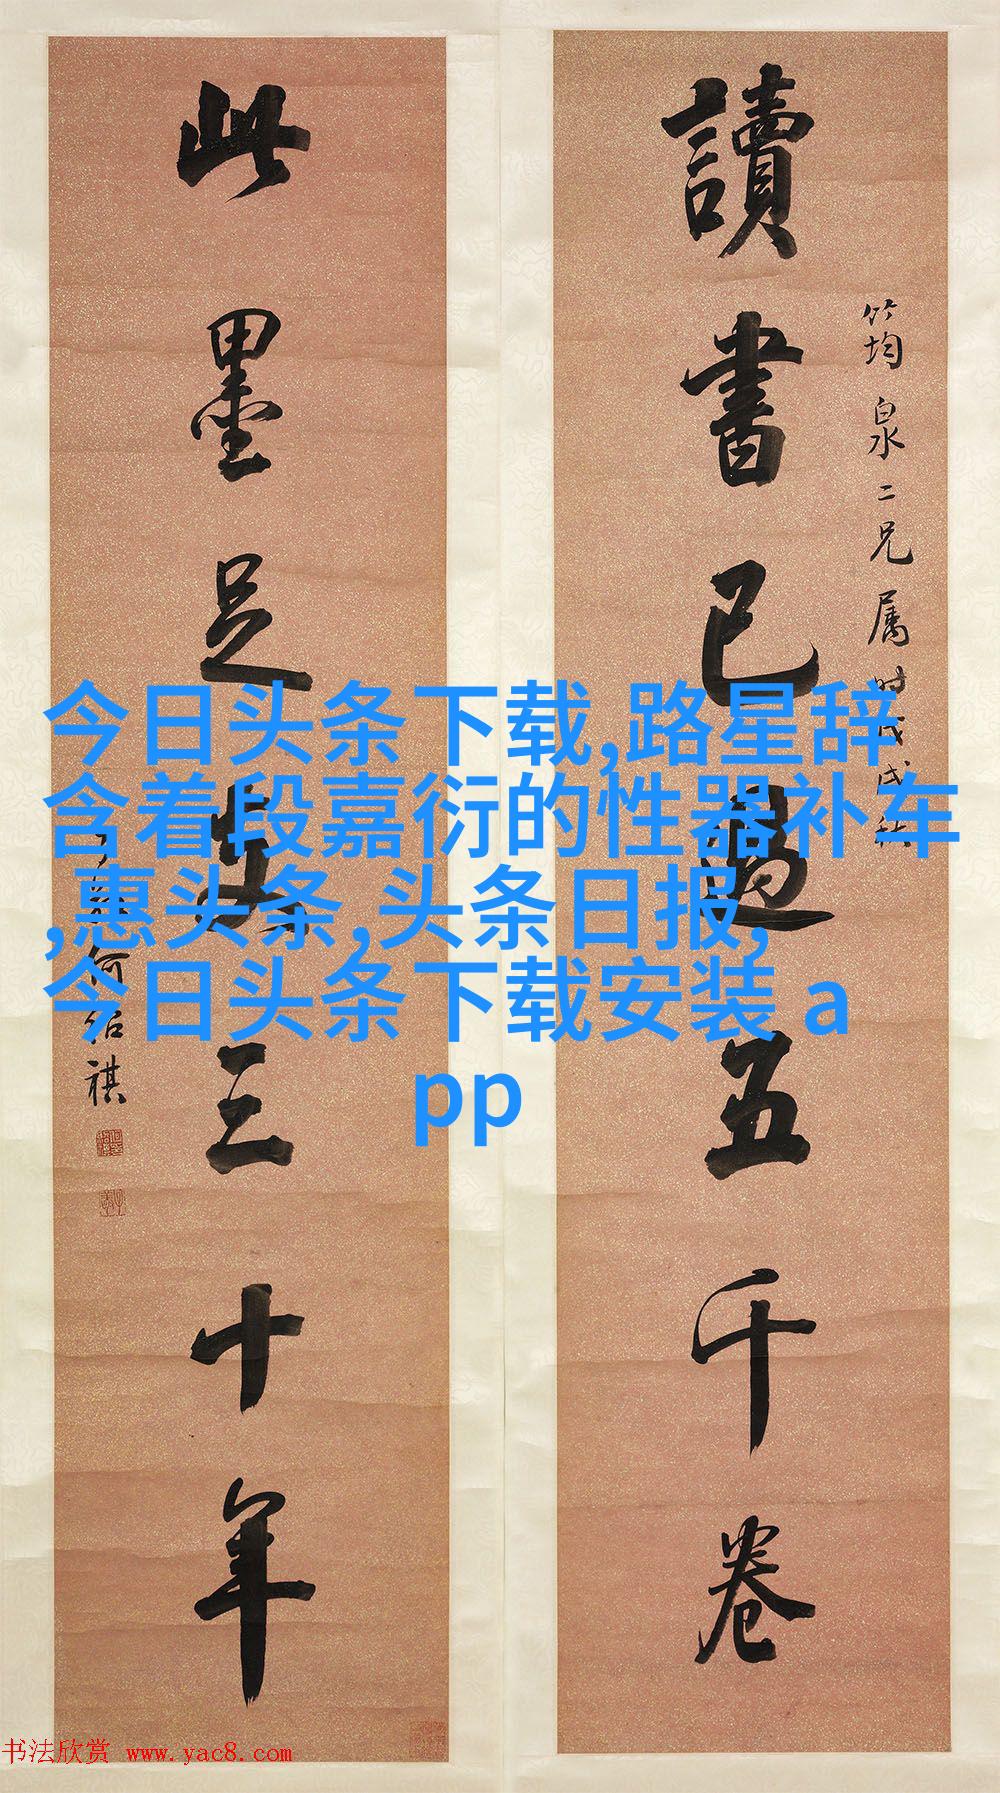 讀書已過五千卷
竹均泉二兄属时戊戌秋
此墨足支三十年
何绍祺
今日头条下载,路星辞
含着段嘉衍的性器补车
,惠头条,头条日报,
今日头条下载安装 a
pp
书法欣赏 www.yac8.com